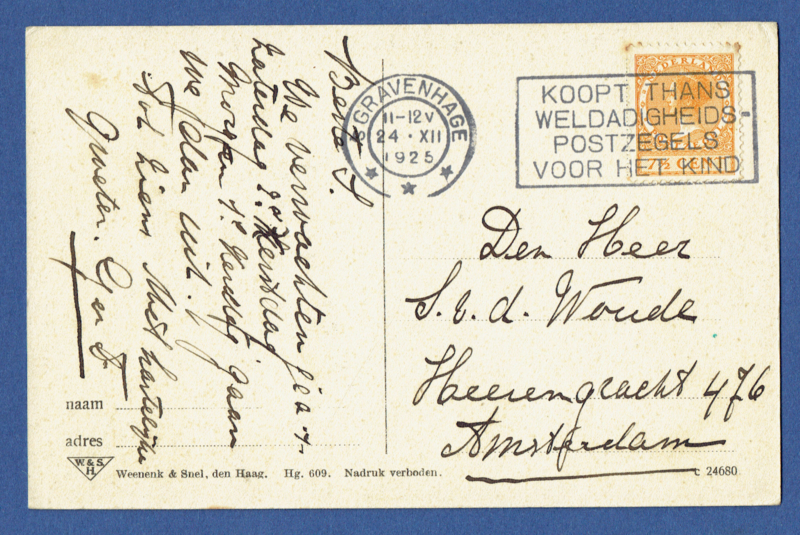 Beste S.
We verwachten je a.s.
Zaterdag 2e Kerstdag
Morgen 1e Kerstdag gaan
we dan uit.
Tot ziens Met hartelijke
Groeten. G en
naam
adres
W. & S. H.
Weenenk & Snel, den Haag. Hg. 609. Nadruk verboden.
'S GRAVENHAGE
11-12V
24 · XII
1925
NEDERLAND
7½ CENT
KOOPT THANS
WELDADIGHEIDS-
POSTZEGELS
VOOR HET KIND
Den Heer
S. v. d. Woude
Heerengracht 476
Amsterdam
c 24680